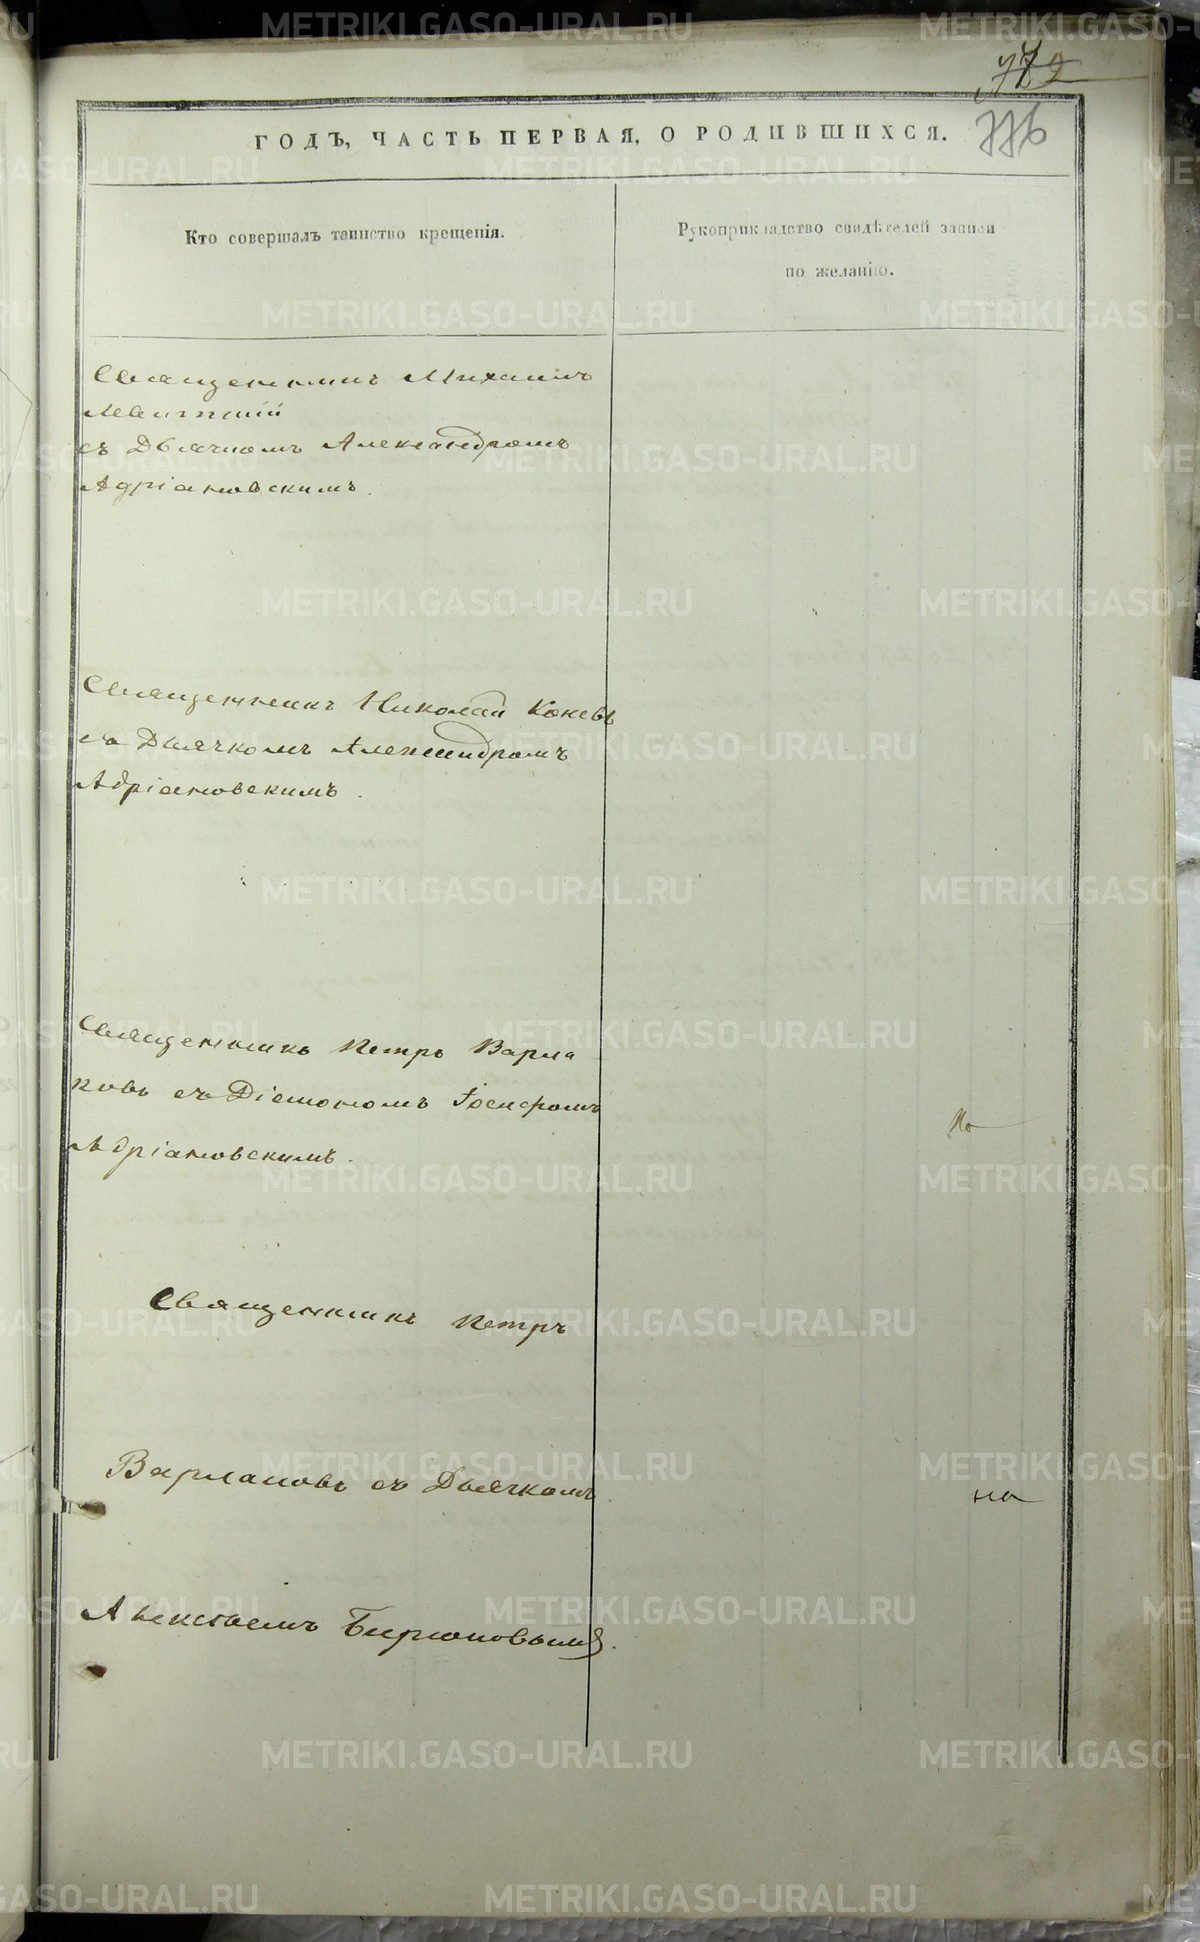 772
776
ГОДЪ, ЧАСТЬ ПЕРВАЯ, О РОДИВШИХСЯ.
Кто совершалъ таинство крещенія.
Рукоприкладство свидѣтелей записи
по желанію.
Священникъ Михаилъ
Левитскій
съ Дьячкомъ Александромъ
Адріановскимъ.
Священникъ Николай Коневъ
съ Дьячкомъ Александромъ
Адріановскимъ.
Священникъ Петръ Варла
ковъ съ Діакономъ Іосифомъ
Адріановскимъ.
Священникъ Петръ
Варлаковъ съ Дьячкомъ
Алексѣемъ Бирюковымъ.
METRIKI.GASO-URAL.RU